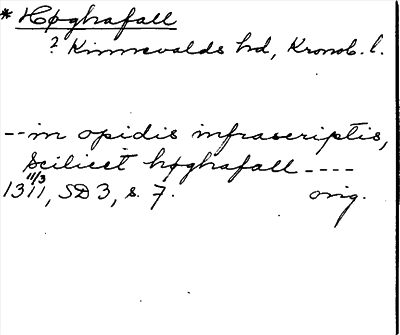 * Høghafall
? Kinnevalds hd, Kronob. l.
-- in opidis infrascriptis,
scilicet høghafall ----
1311 11/3, SD 3, s. 7. orig.